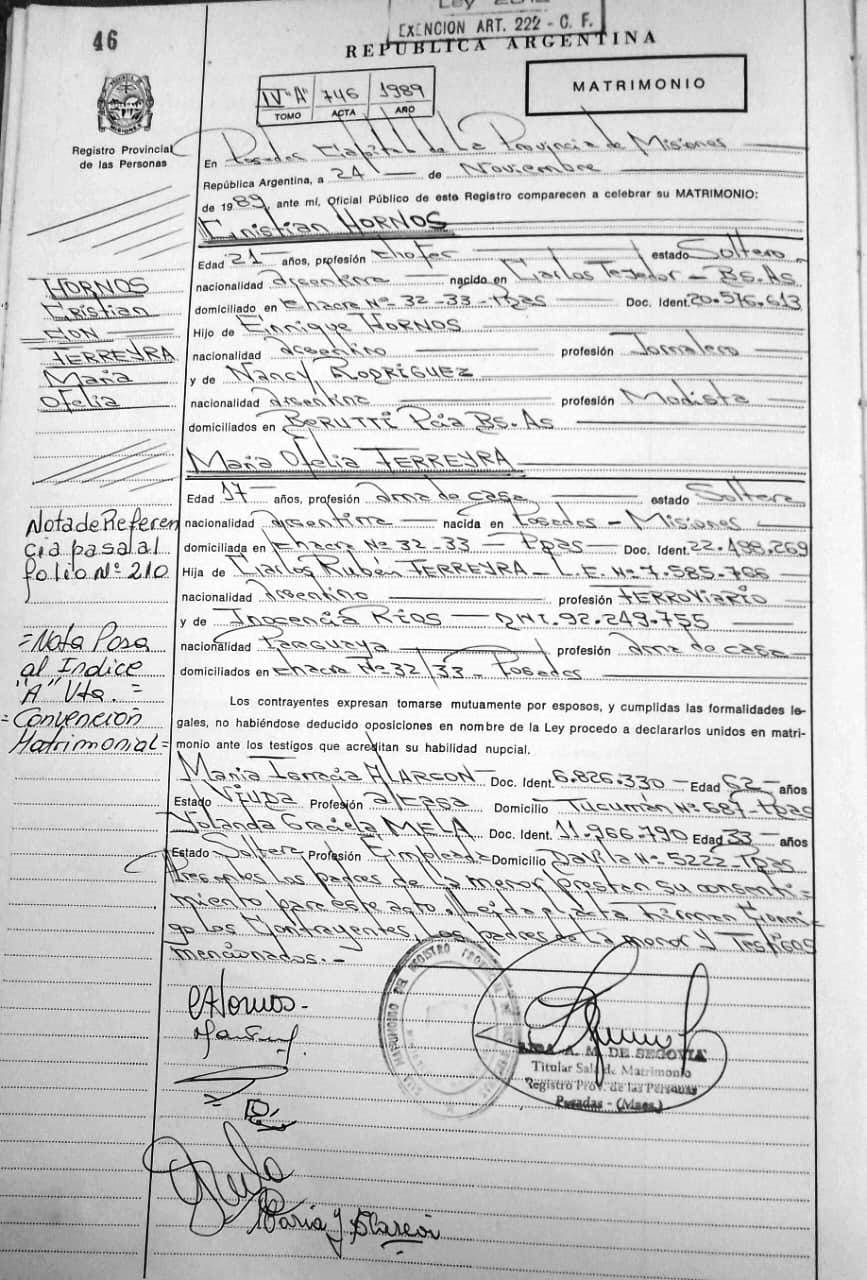 46
EXENCION ART. 222 - C. F.
REPUBLICA ARGENTINA
MATRIMONIO
IV "A" 746 1989
TOMO ACTA AÑO
Registro Provincial
de las Personas
En Posadas Capital de La Provincia de Misiones
República Argentina, a 24 de Noviembre
de 1989 ante mí, Oficial Público de este Registro comparecen a celebrar su MATRIMONIO:
Cristian HORNOS
Edad 21 años, profesión chofer estado Soltero
nacionalidad argentina nacido en Carlos Tejedor - Bs. As
domiciliado en chacra Nº 32-33-Ppas Doc. Ident. 20.576.613
Hijo de Enrique HORNOS
nacionalidad argentino profesión Jornalero
y de Nancy RODRÍGUEZ
nacionalidad argentina profesión Modista
domiciliados en BERUTTI Pcia Bs. As
María Ofelia FERREYRA
Edad 17 años, profesión ama de casa estado Soltera
nacionalidad argentina nacida en Posadas - Misiones
domiciliada en chacra Nº 32-33 - Ppas Doc. Ident. 22.498.269
Hija de Carlos Rubén FERREYRA - L.E. Nº 7.585.766
nacionalidad argentino profesión FERROViario
y de Inocencia RÍOS - DNI. 92.249.755
nacionalidad Paraguaya profesión ama de casa
domiciliados en chacra Nº 32/33 - Posadas
Los contrayentes expresan tomarse mutuamente por esposos, y cumplidas las formalidades le-
gales, no habiéndose deducido oposiciones en nombre de la Ley procedo a declararlos unidos en matri-
monio ante los testigos que acreditan su habilidad nupcial.
María ALARCON Doc. Ident. 6.826.330 Edad 62 años
Estado Viuda Profesión a/casa Domicilio Tucumán Nº 687 - Ppas
Yolanda Graciela MELA Doc. Ident. 11.966.790 Edad 33 años
Estado Soltera Profesión Empleada Domicilio Davila Nº 5222 - Ppas
Presentes los padres de La menor prestan su consenti-
miento para este acto. Leida el acta firman Conmi-
go los Contrayentes, los padres de La menor y Testigos
mencionados. -
HORNOS
Cristian
CON
FERREYRA
María
Ofelia
Nota de Referen
cia pasa al
folio Nº 210
= Nota Pasa
al Indice
"A" Vta. =
= Convención
Matrimonial =
CHornos -
A. M. DE SEGOVIA
Titular Sala de Matrimonio
Registro Prov. de las Personas
Posadas - (Mnes.)
María Y Alarcon